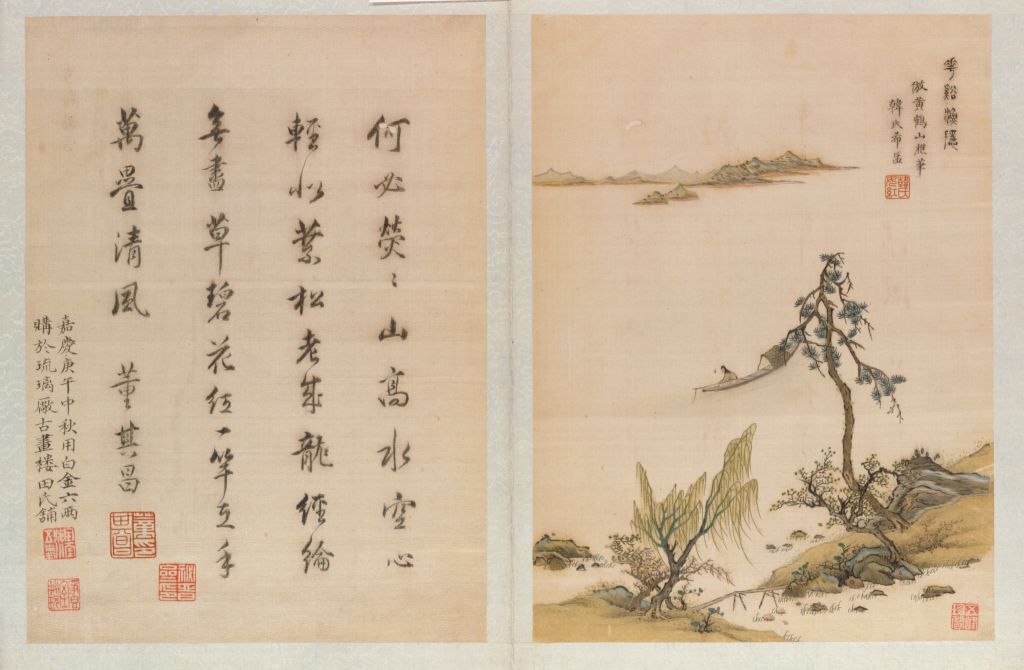 花谿漁隱
倣黃鶴山樵筆
韓氏希孟
何必熒〻山高水空心
輕似葉松老成龍經綸
無盡草碧花紅一竿在手
萬疊清風 董其昌
嘉慶庚午中秋用白金六兩
購於琉璃厰古畫楼田氏舖